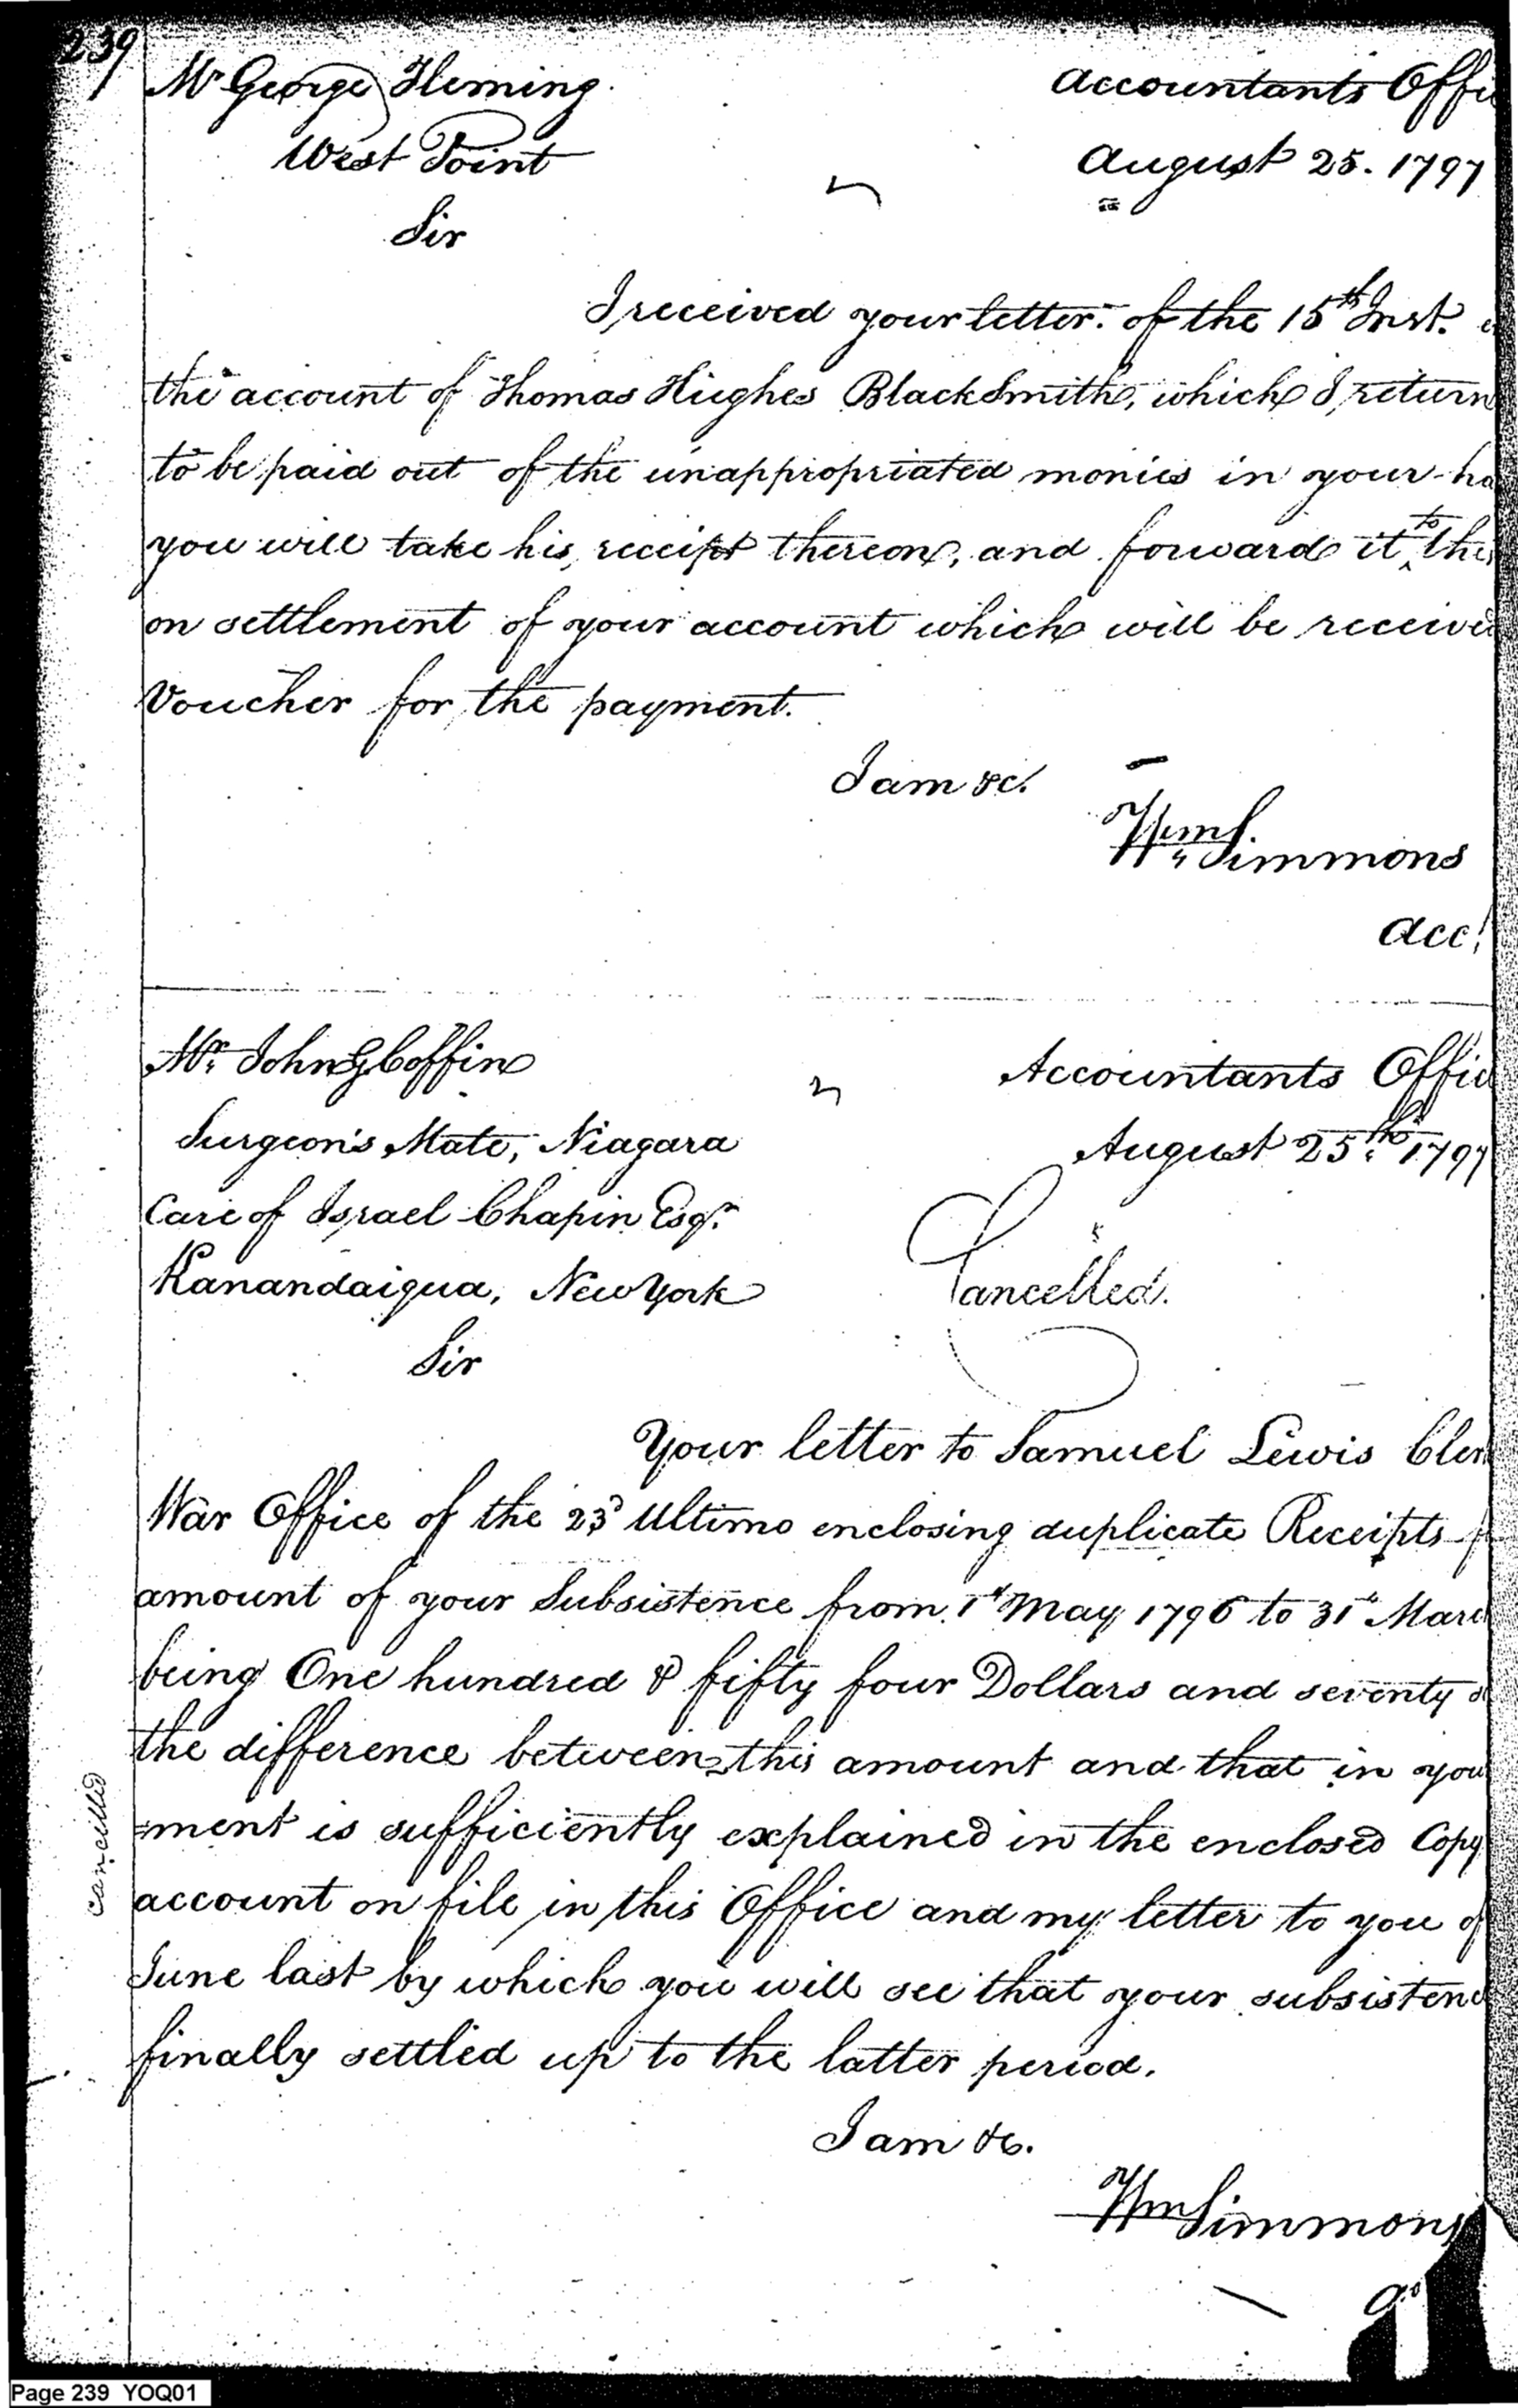 239
Mr George Fleming.
Accountants Offi
West Point
August 25. 1797
Sir
I received your letter of the 15th Inst.
the account of Thomas Hughes BlackSmith, which I return
to be paid out of the unappropriated monies in your ha
you will take his receipt thereon, and forward it to thi
on settlement of your account which will be receive
Voucher for the payment.
I am &c.
Wm Simmons
Acct
Mr. John G Coffin
Accountants Offic
Surgeon's Mate, Niagara
August 25th. 1797
Care of Israel Chapin Esqr.
Kanandaigua, New York
Cancelled.
Sir
Your letter to Samuel Lewis Cler
War Office of the 23d Ultimo enclosing duplicate Receipts f
amount of your Subsistence from 1st May 1796 to 31st Marc
being One hundred & fifty four Dollars and seventy
the difference between this amount and that in you
=ment is sufficiently explained in the enclosed Copy
account on file in this Office and my letter to you of
June last by which you will see that your subsistenc
finally settled up to the latter period.
cancelled
I am &c.
Wm Simmons
Page 239 YOQ01